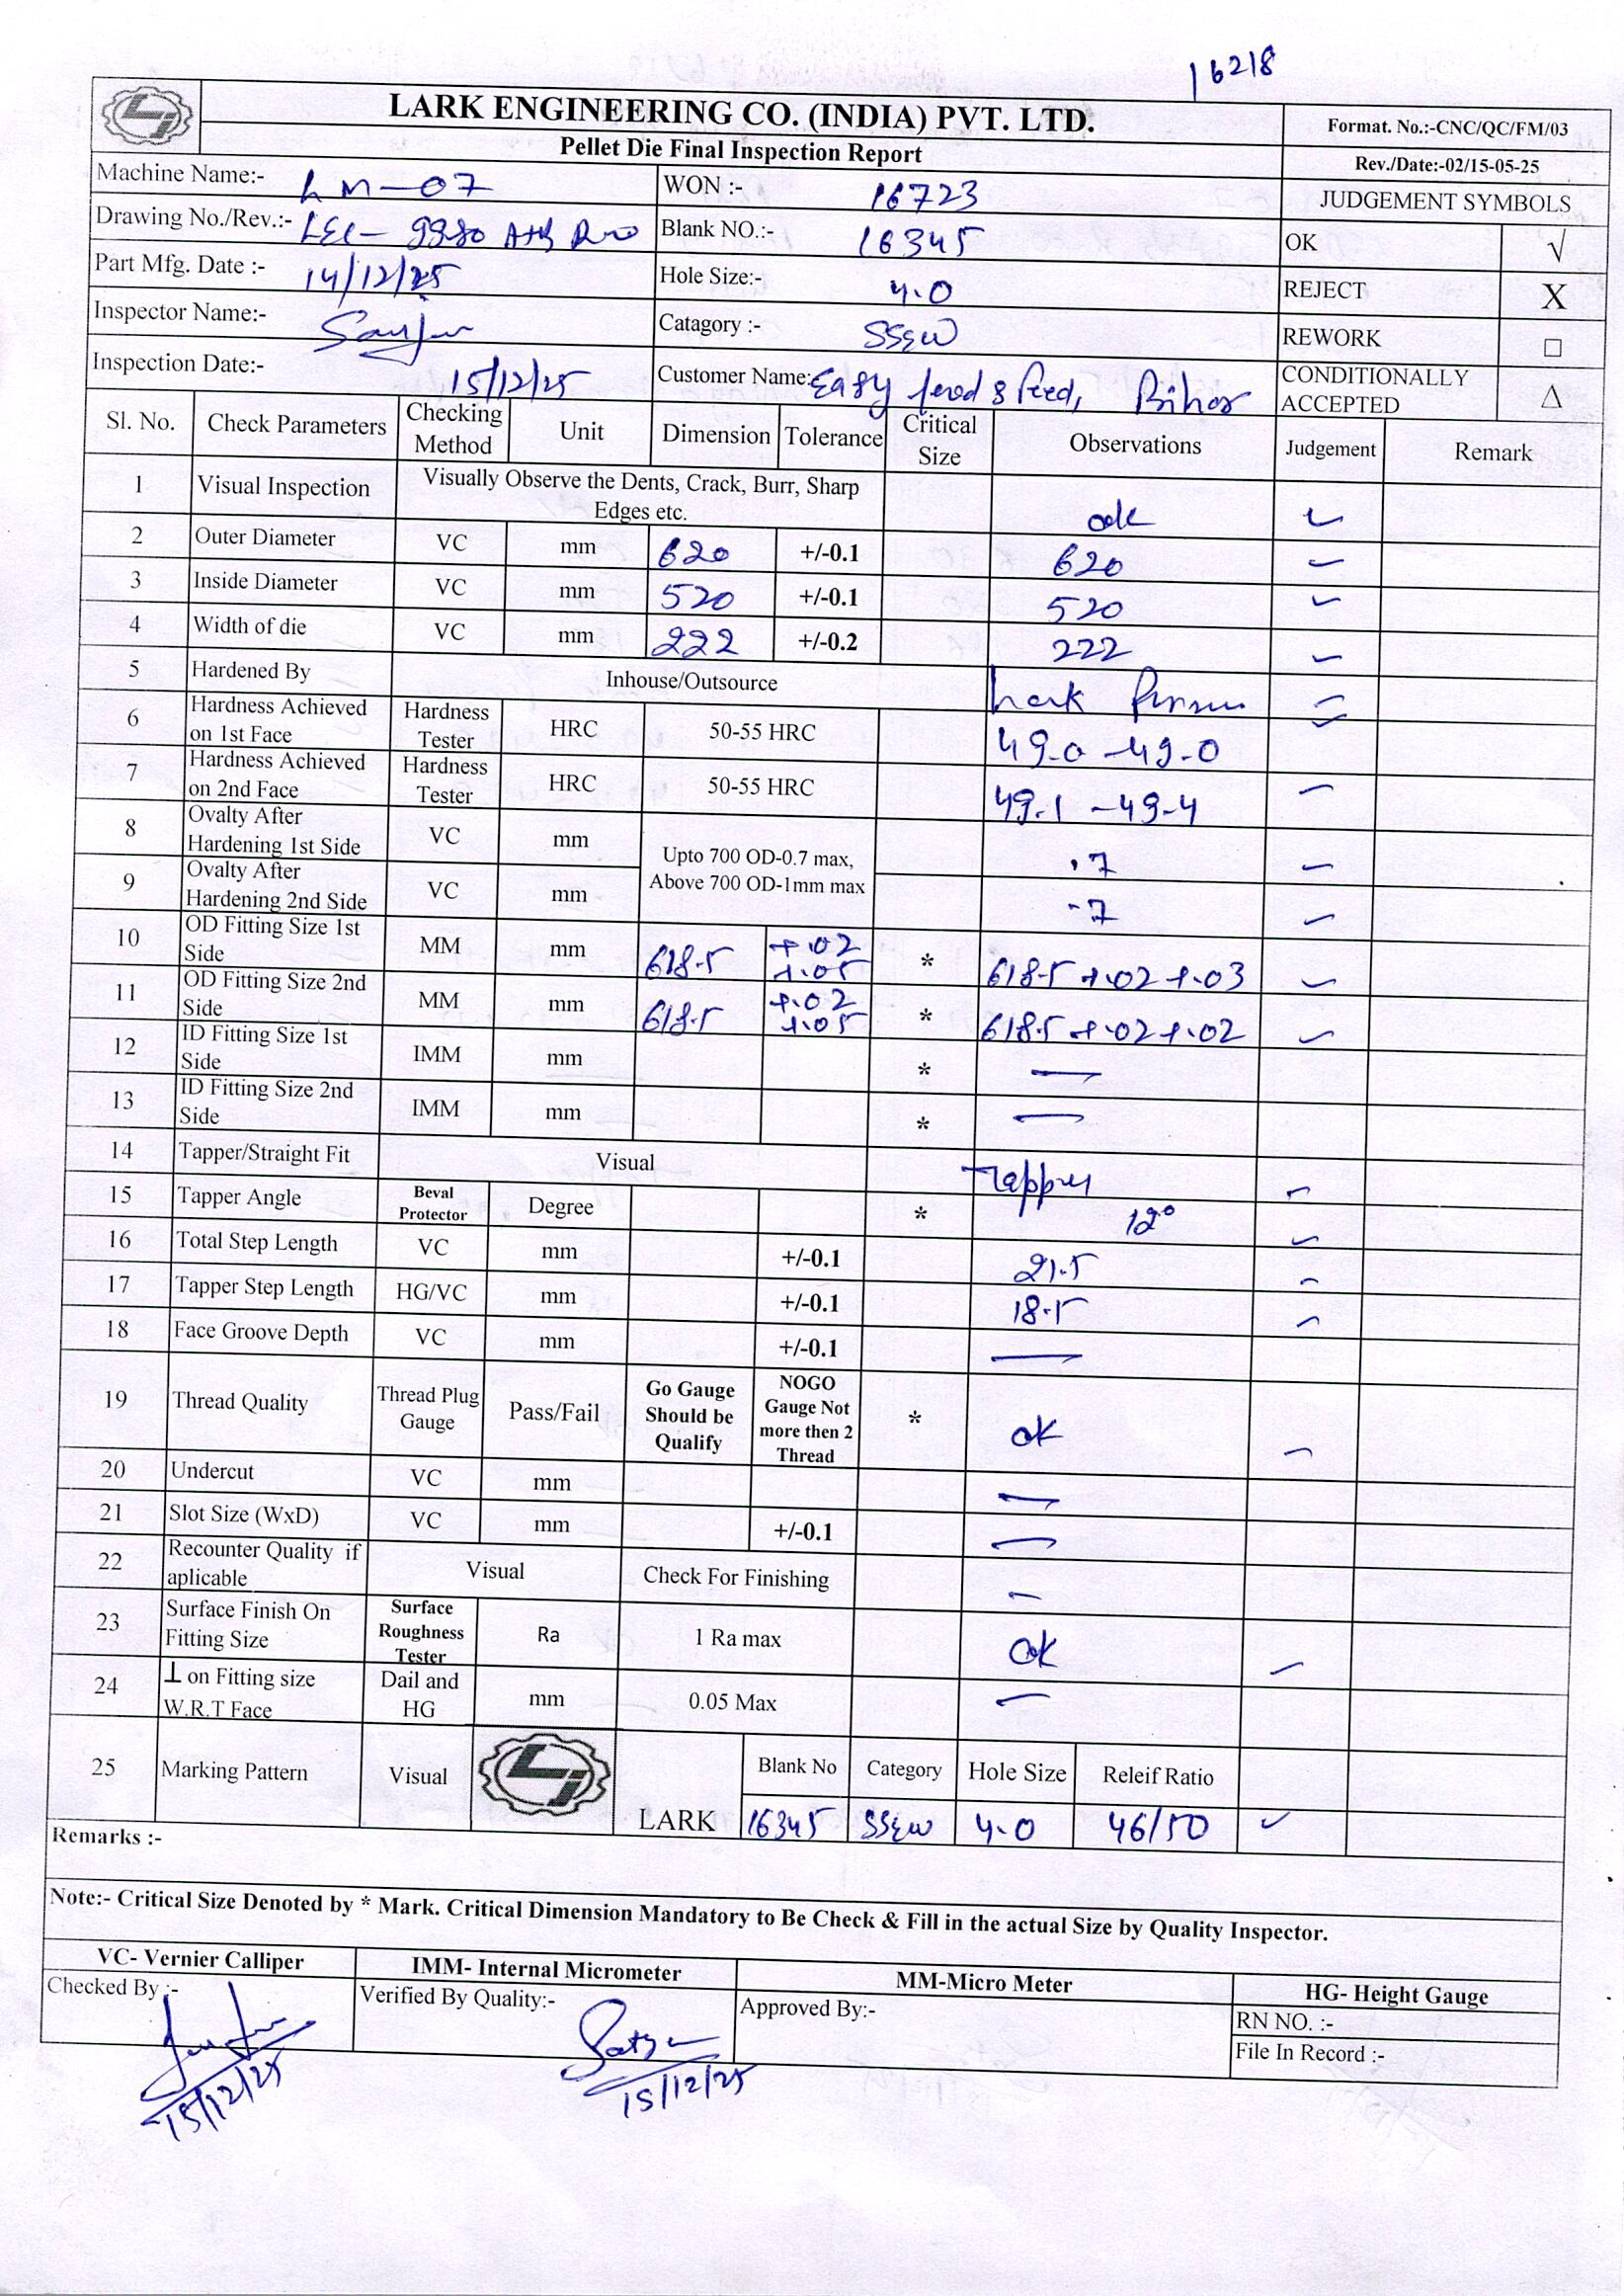 16218
LARK ENGINEERING CO. (INDIA) PVT. LTD.
Pellet Die Final Inspection Report
Format. No.:-CNC/QC/FM/03
Rev./Date:-02/15-05-25
JUDGEMENT SYMBOLS
Machine Name:- LM-07 WON :- 16723
Drawing No./Rev.:- LEC- Blank NO.:- 16345 OK √
Part Mfg. Date :- 14/12/25 Hole Size:- 4.0 REJECT X
Inspector Name:- Catagory :- SSEW REWORK □
Inspection Date:- 15/12/25 Customer Name: Easy feed, Bihar CONDITIONALLY ACCEPTED △
Sl. No. Check Parameters Checking Method Unit Dimension Tolerance Critical Size Observations Judgement Remark
1 Visual Inspection Visually Observe the Dents, Crack, Burr, Sharp Edges etc. ook ✓
2 Outer Diameter VC mm 620 +/-0.1 620 ✓
3 Inside Diameter VC mm 520 +/-0.1 520 ✓
4 Width of die VC mm 222 +/-0.2 222 ✓
5 Hardened By Inhouse/Outsource Lark ✓
6 Hardness Achieved on 1st Face Hardness Tester HRC 50-55 HRC 49.0 -49.0 ✓
7 Hardness Achieved on 2nd Face Hardness Tester HRC 50-55 HRC 49.1 -49.4 ✓
8 Ovalty After Hardening 1st Side VC mm Upto 700 OD-0.7 max, Above 700 OD-1mm max .7 ✓
9 Ovalty After Hardening 2nd Side VC mm .7 ✓
10 OD Fitting Size 1st Side MM mm 618.5 +.02 +.05 * 618.5 +.02 +.03 ✓
11 OD Fitting Size 2nd Side MM mm 618.5 +.02 +.05 * 618.5 +.02 +.02 ✓
12 ID Fitting Size 1st Side IMM mm * —
13 ID Fitting Size 2nd Side IMM mm * —
14 Tapper/Straight Fit Visual Tapper ✓
15 Tapper Angle Beval Protector Degree * 12° ✓
16 Total Step Length VC mm +/-0.1 21.5 ✓
17 Tapper Step Length HG/VC mm +/-0.1 18.5 ✓
18 Face Groove Depth VC mm +/-0.1 —
19 Thread Quality Thread Plug Gauge Pass/Fail Go Gauge Should be Qualify NOGO Gauge Not more then 2 Thread * ok ✓
20 Undercut VC mm —
21 Slot Size (WxD) VC mm +/-0.1 —
22 Recounter Quality if aplicable Visual Check For Finishing —
23 Surface Finish On Fitting Size Surface Roughness Tester Ra 1 Ra max ok ✓
24 ⊥ on Fitting size W.R.T Face Dail and HG mm 0.05 Max —
25 Marking Pattern Visual LARK Blank No Category Hole Size Releif Ratio
16345 SSEW 4.0 46/50 ✓
Remarks :-
Note:- Critical Size Denoted by * Mark. Critical Dimension Mandatory to Be Check & Fill in the actual Size by Quality Inspector.
VC- Vernier Calliper IMM- Internal Micrometer MM-Micro Meter HG- Height Gauge
Checked By :- Verified By Quality:- Approved By:- RN NO. :-
File In Record :-
15/12/25 15/12/25